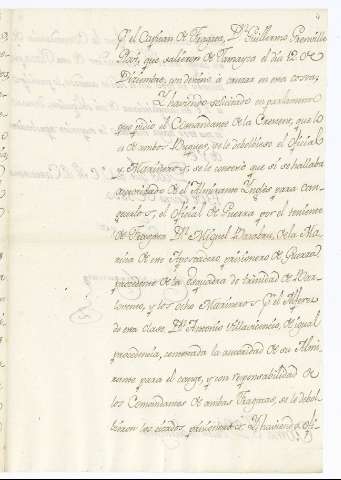 4
y el Capitan de Fragata, Dn. Guillermo Grenville
que salieron de Jamayca el dia 12 de
Diziembre, con destino á cruzar en esta costa;
Y haviendo solicitado en parlamento
que pidio el Comandante de la Crescent, que lo
es de ambos Buques, se le debolviesen el Oficial
y Marineros, se le contextó que si se hallaba
autorizado de el Almirante Ingles para can-
gearlos, el Oficial de Guerra por el teniente
de Fragata Dn. Miguel de la Ma-
rina de este Apostadero, prisionero de Guerra
procedente de la Esquadra de trinidad de Bar-
lovento, y los ocho Marineros p.r el Alferez
de esta clase Dn. Antonio Villavicencio, de igual
procedencia, contextada la autoridad de su Almi-
rante para el cange, y con responsabilidad de
los Comandantes de ambas Fragatas, se le debol-
vieron los citados prisioneros. Y haviendo